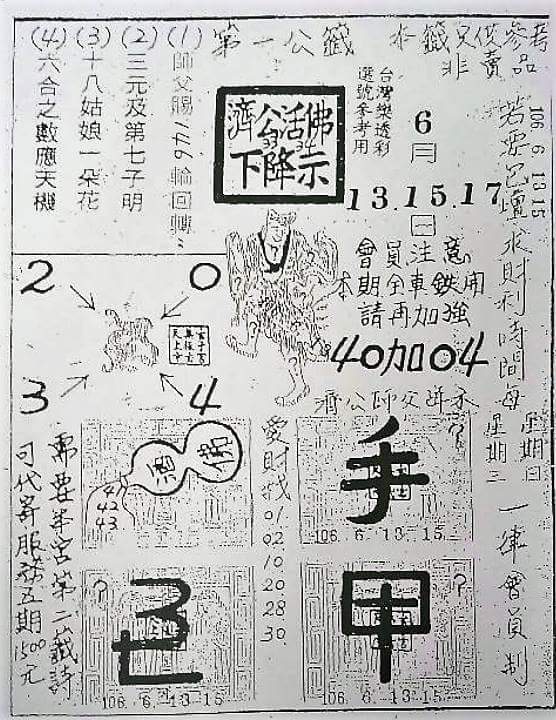 第一公籤
本籤只供參考
非賣品
(1) 師父賜
輪回轉
(2) 三元及第七子明
(3) 十八姑娘一朵花
(4) 六合之數應天機
濟公活佛
33 34
下降示
台灣樂透彩
選號參考用
6
月
13.15.17
會員注意
本期全車鉄用
請再加強
40加04
濟公師父詳示
106 6 13 15
若要巴壇求財利時間每
星期日
星期三
一律會員制
2
0
3
4
酒
佛
41
42
43
愛財找
01
02
10
20
28
30
?
手
106. 6. 13. 15
?
106. 6. 13. 15
?
甲
106. 6. 13. 15.
需要本宮第二籤詩
可代寄服務五期
1500元